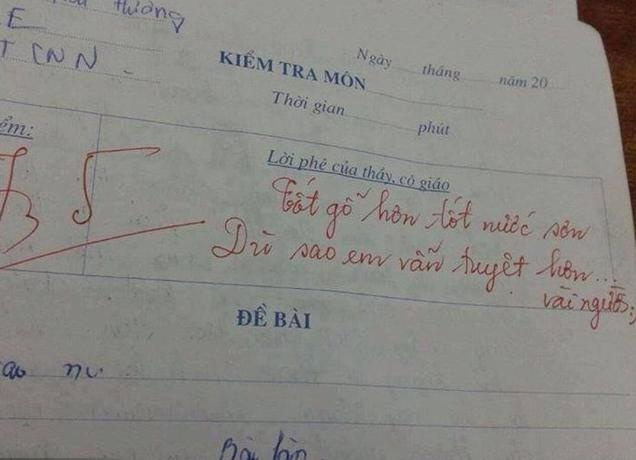 thương
E
T CNN
KIỂM TRA MÔN
Ngày tháng năm 20
Thời gian phút
ểm:
Lời phê của thầy, cô giáo
75
Tốt gỗ hơn tốt nước sơn
Dù sao em vẫn tuyệt hơn...
vài người :)
ĐỀ BÀI
Bài làm